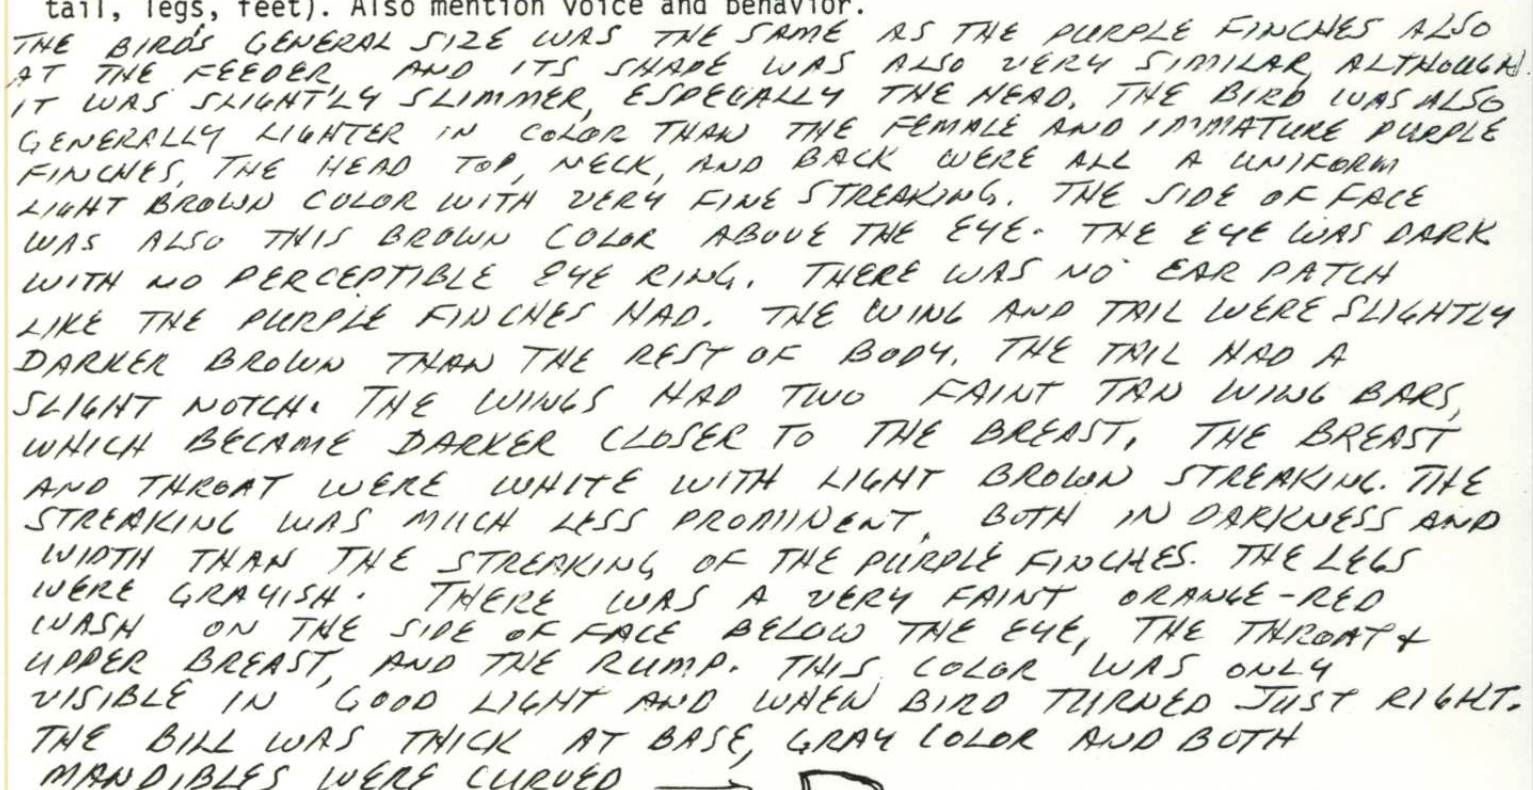 tail, legs, feet). Also mention voice and behavior.
THE BIRD'S GENERAL SIZE WAS THE SAME AS THE PURPLE FINCHES ALSO
AT THE FEEDER, AND ITS SHAPE WAS ALSO VERY SIMILAR, ALTHOUGH
IT WAS SLIGHTLY SLIMMER, ESPECALLY THE HEAD. THE BIRD WAS ALSO
GENERALLY LIGHTER IN COLOR THAN THE FEMALE AND IMMATURE PURPLE
FINCHES, THE HEAD TOP, NECK, AND BACK WERE ALL A UNIFORM
LIGHT BROWN COLOR WITH VERY FINE STREAKING. THE SIDE OF FACE
WAS ALSO THIS BROWN COLOR ABOVE THE EYE. THE EYE WAS DARK
WITH NO PERCEPTIBLE EYE RING. THERE WAS NO EAR PATCH
LIKE THE PURPLE FINCHES HAD. THE WING AND TAIL WERE SLIGHTLY
DARKER BROWN THAN THE REST OF BODY. THE TAIL HAD A
SLIGHT NOTCH. THE WINGS HAD TWO FAINT TAN WING BARS,
WHICH BECAME DARKER CLOSER TO THE BREAST. THE BREAST
AND THROAT WERE WHITE WITH LIGHT BROWN STREAKING. THE
STREAKING WAS MUCH LESS PROMINENT, BOTH IN DARKNESS AND
WIDTH THAN THE STREAKING OF THE PURPLE FINCHES. THE LEGS
WERE GRAYISH. THERE WAS A VERY FAINT ORANGE-RED
WASH ON THE SIDE OF FACE BELOW THE EYE, THE THROAT &
UPPER BREAST, AND THE RUMP. THIS COLOR WAS ONLY
VISIBLE IN GOOD LIGHT AND WHEN BIRD TURNED JUST RIGHT.
THE BILL WAS THICK AT BASE, GRAY COLOR AND BOTH
MANDIBLES WERE CURVED